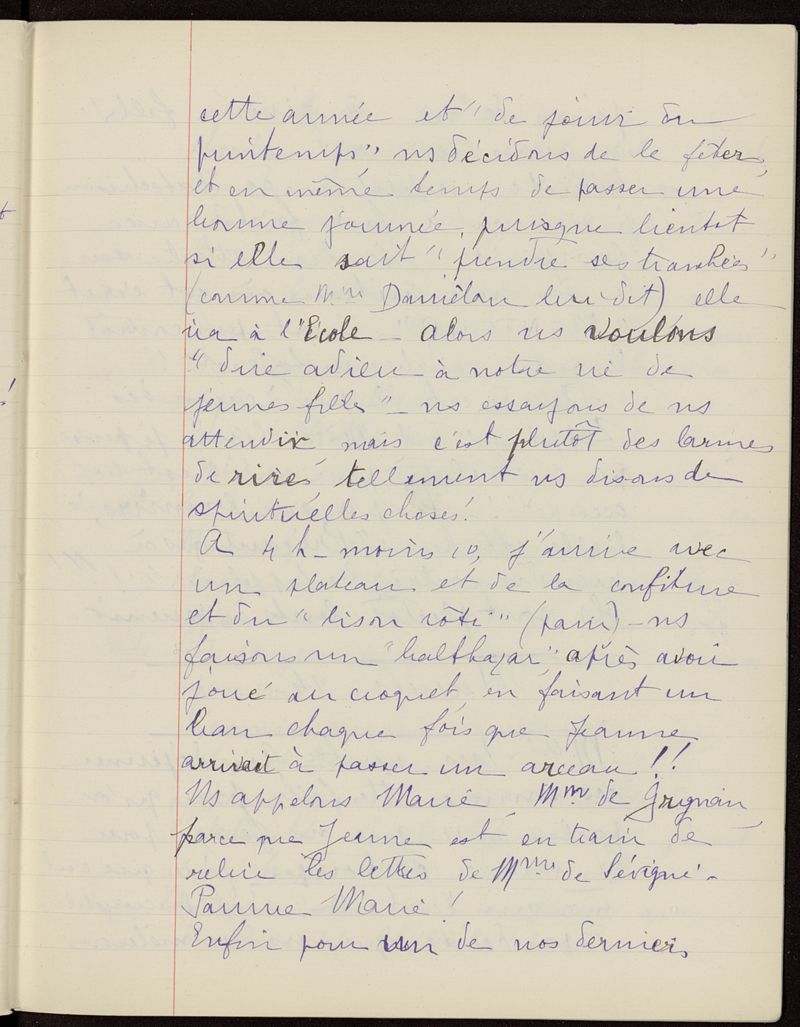 cette année et "de jour du
printemps", ns décidons de le fêter,
et en même temps de passer une
bonne journée, puisque bientôt
si elle sait "prendre ses tranchées"
(comme Mme Daniélou lui dit) elle
ira à l'École - alors ns voulons
"dire adieu - à notre vie de
jeunes filles" - ns essayons de ns
attendrir mais c'est plutôt des larmes
de rires, tellement ns disons de
spirituelles choses!
A 4 h - moins 10, j'arrive avec
un plateau et de la confiture
et du "bison rôti" (pain) - ns
faisons un "balthazar", après avoir
joué au croquet, en faisant un
ban chaque fois que Jeanne
arrivait à passer un arceau!!
Ns appelons Marie, Mme de Grignan,
parce que Jeanne est en train de
relire les lettres de Mme de Sévigné -
Pauvre Marie!
Enfin pour un de nos derniers